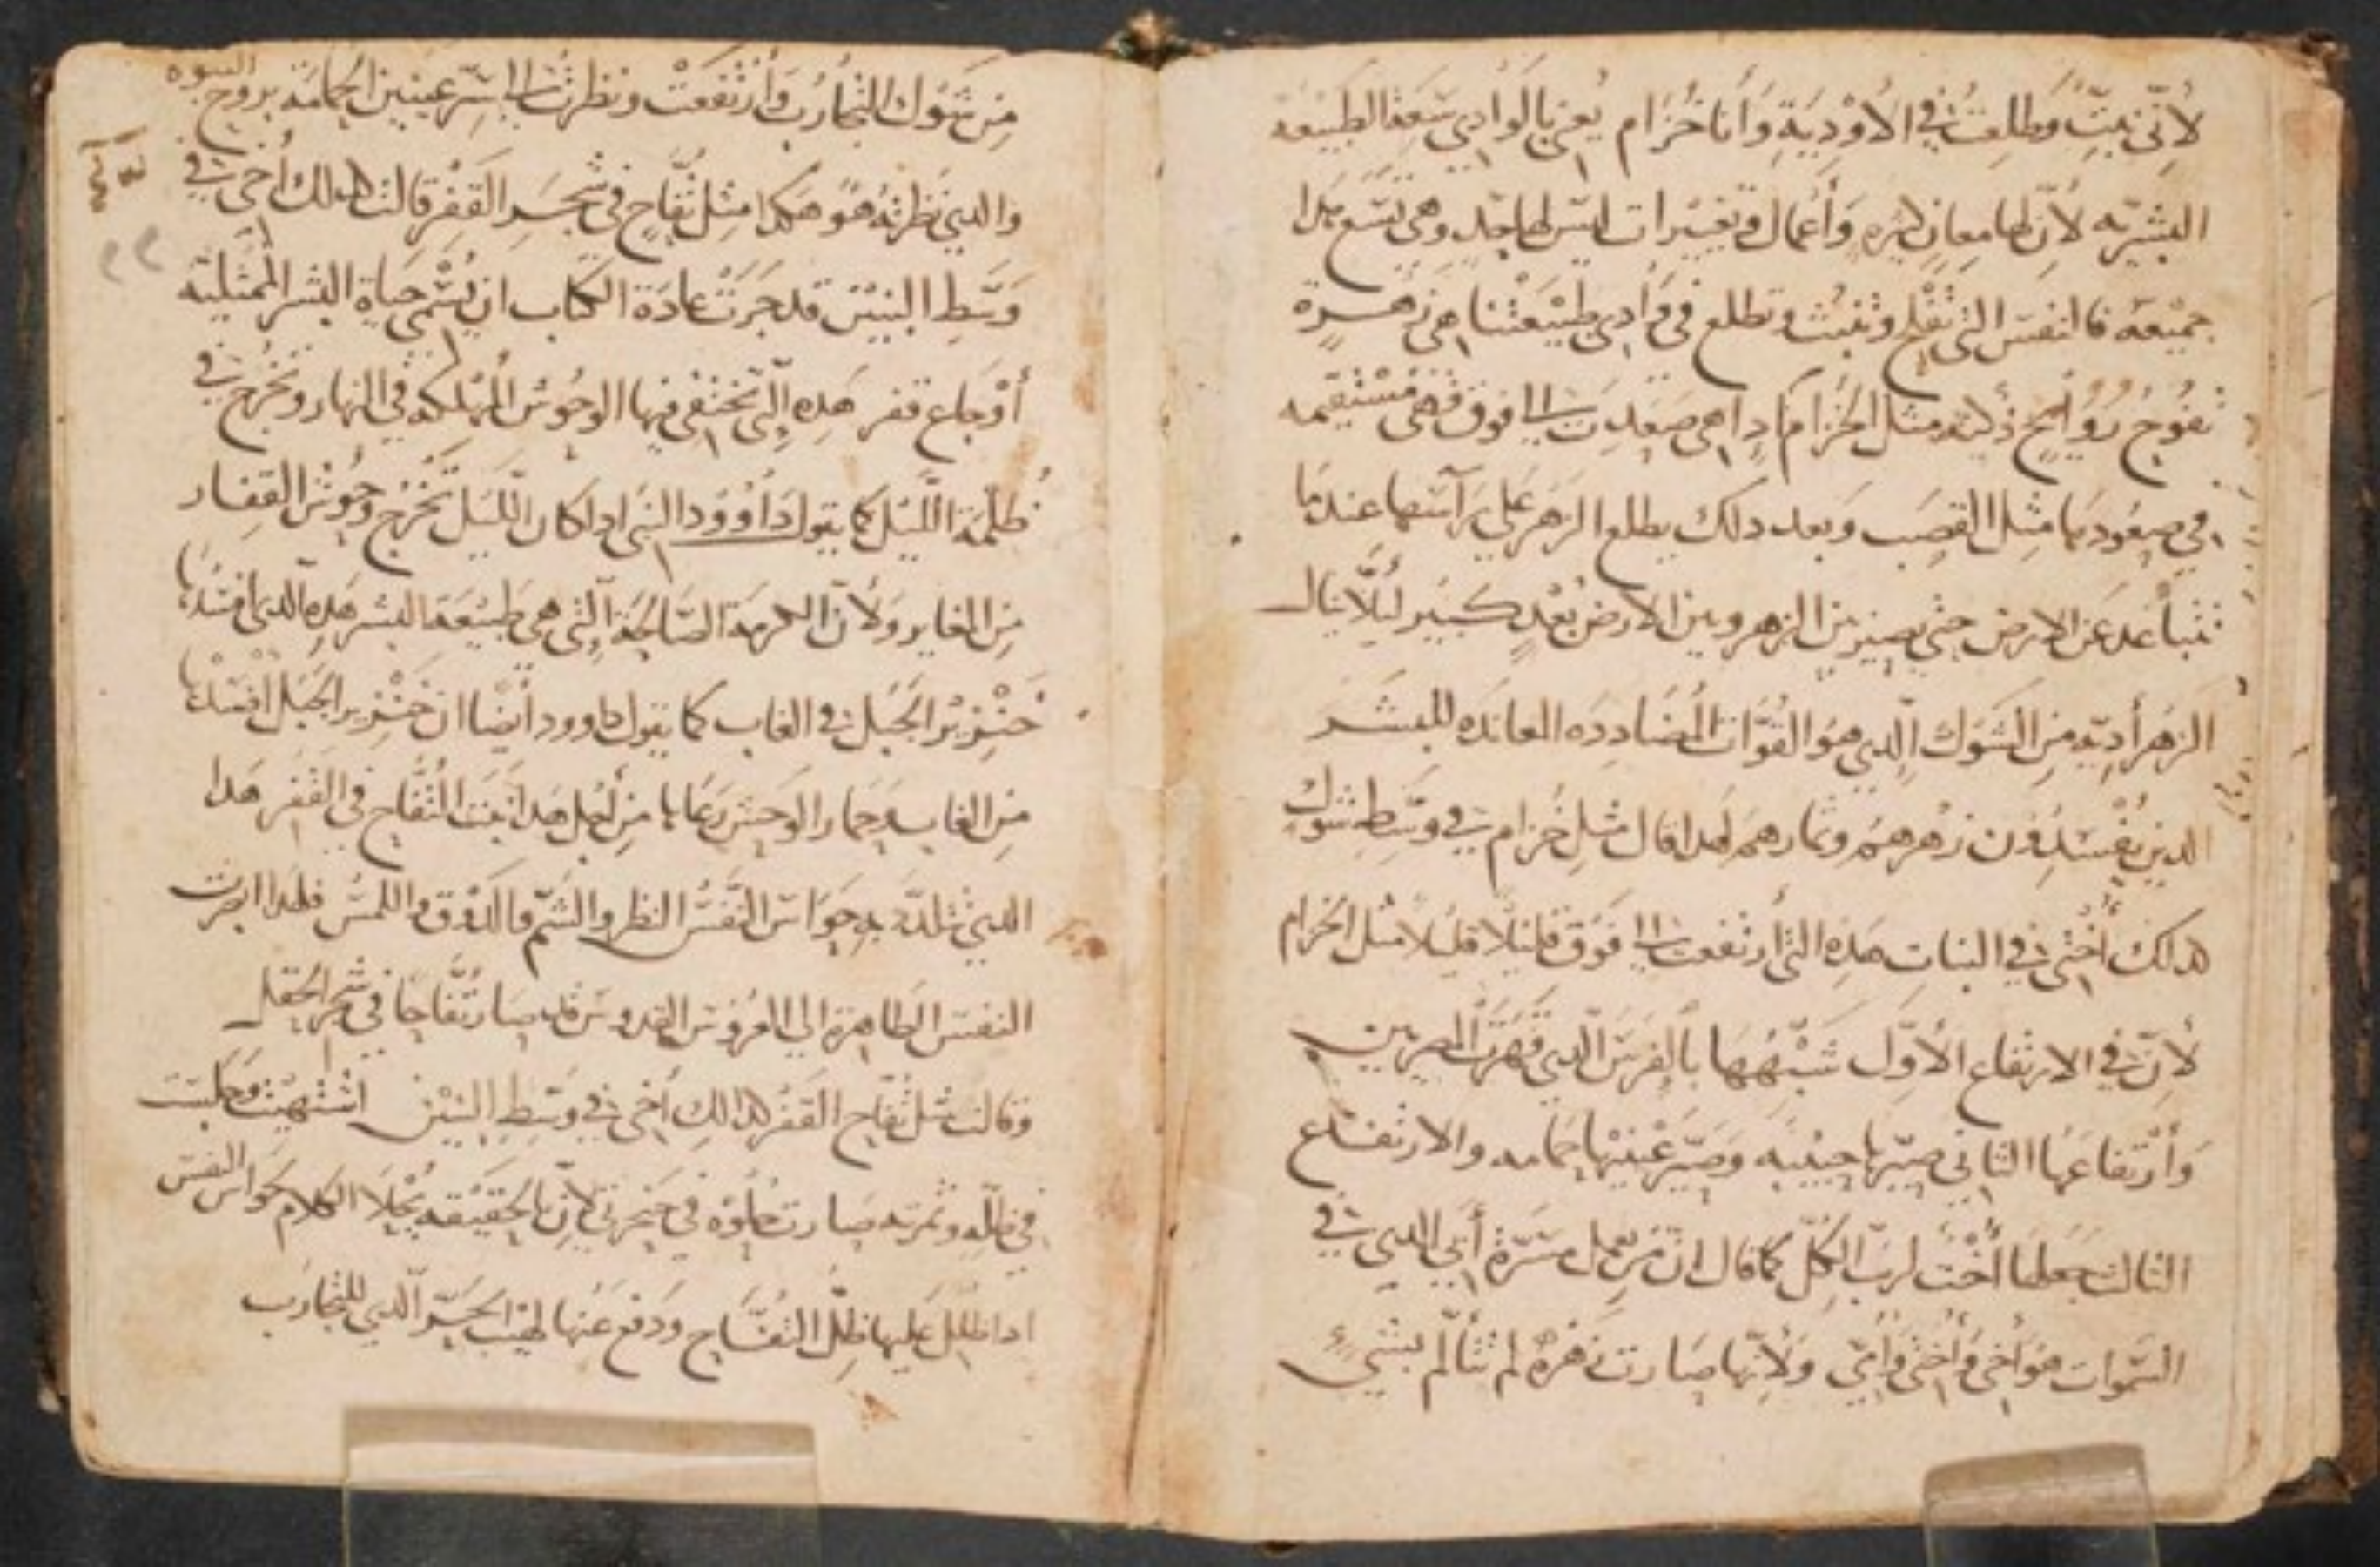 لأنّي نبتّ وطلعت في الأودية وأنا خزام يعني بالوادي سعة الطبيعة
البشرية لأن لها معانٍ كثيره وأعمال وتغييرات ليس لها حدٍ وهي تسع هدا
جميعه فالنفس التي تفلح وتنبت وتطلع في وادي طبيعتنا هي زهرة
تفوح روُايح ذكية مثل الخزام ادا هي صعدت إلى فوق فهي مستقيمه
في صعودها مثل القصب وبعد دلك يطلع الزهر على راسها عندما
تتباعد عن الارض حتى يصير بين الزهر وبين الارض بعدٍ كبير ليلا ينال
الزهر أديّة من الشوك الدي هو القوّات المُضاددة المعانده للبشر
الدين يفسدون زهرهم وثمارهم لهدا قال مثل خزام في وسط شوك
كدلك أختي في البنات هده التي أرتفعت إلى فوق قليلا قليلا مثل الخزام
لأن في الارتفاع الأوّل شبّهها بالفرس الدي قهرت المصريين
وأرتفاعها الثاني صيّرها حبيبه وصيّر عينيها حمامه والارتفاع
الثالث جعلها أخت لرب الكل كما قال ان من يعمل مسرّة أبي الدي في
السموات هو أخي وأختي وأمّي ولأنها صارت زهرة لم تتألم بشيءٍ
من شوك التجارب وأرتفعت ونظرت إلى سرّ عينين الحمامة بروح النبوه
والدي نظرته هو هكدا مثل تفاح في شجر القفر قالت كدلك أخي في
وسط البنين قد جرت عادة الكتاب ان يسمّي حياة البشر الممثلية
أوجاع قفر هده التي تختفي فيها الوحوش المُهلكه في النهار وتخرج في
ظلمة الليل كما يقول داوود النبي ادا كان الليل تخرج وحوش القفار
من المغاير ولأن الكرمة الصالحة التي هي طبيعة البشر هده الدي افسدها
خنزير الجبل في الغاب كما يقول داوود أيضا ان خنزير الجبل افسدها
من الغاب وحمار الوحش رعاها من أجل هدا نبت التفاح في القفر هدا
الدي تلدّ به حواس النفس النظر والشم والدوق واللمس فلهدا ابصرت
النفس الطاهرة الي العروس القدوس قد صار تفاحا في شجر الحقل
وقالت مثل تفاح القفر كدالك أخي في وسط البنين اشتهيت وجلست
في ظلّه وثمرته صارت حلوة في حنجرتي لأن بالحقيقه يُحلا الكلام حواس النفس
ادا ظلل عليها ظلّ التفاح ودفع عنها لهيب الحرّ الدي للتجارب